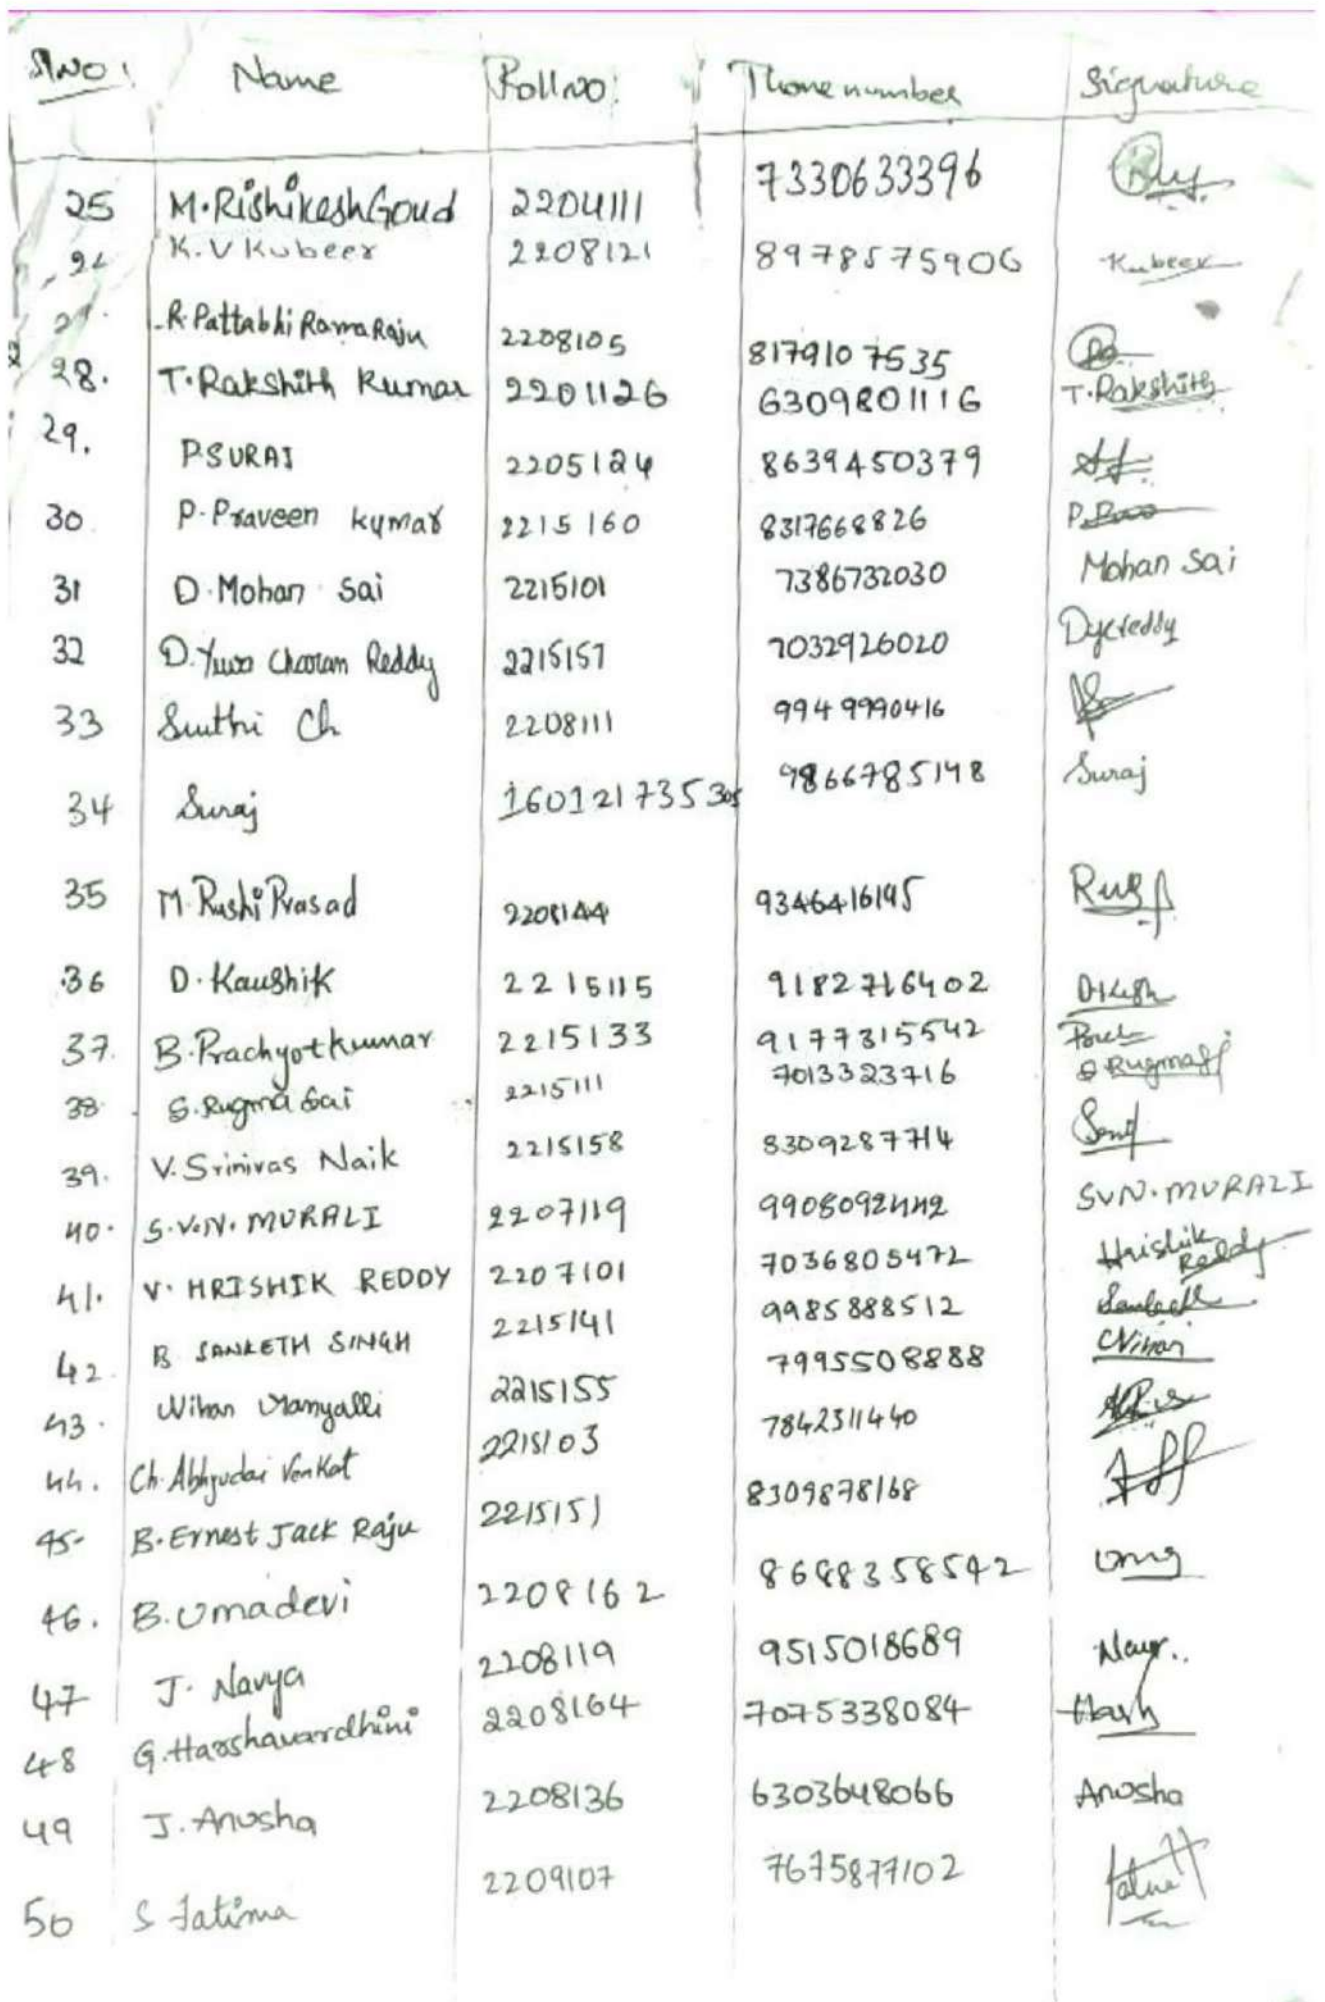 Sl.No: Name Rollno: Phone number Signature
25 M.Rishikesh Goud 2204111 7330633396
K.V Kubeer 2208121 8978575906 Kubeer
R.Pattabhi Rama Raju 2208105 8179107535
28. T.Rakshith Kumar 2201126 6309801116 T.Rakshith
29. P.SURAJ 2205124 8639450379
30 P.Praveen kumar 2215160 8317668826
31 D.Mohan Sai 2215101 7386732030 Mohan Sai
32 D.Yuva Charan Reddy 2215157 7032926020 Dycreddy
33 Sruthi Ch 2208111 9949990416
34 Suraj 160121735305 9866785148 Suraj
35 M Rushi Prasad 2208144 9346416195
36 D.Kaushik 2215115 9182716402
37. B.Prachyotkumar 2215133 9177315542
38. S.Rugma Sai 2215111 7013323716
39. V.Srinivas Naik 2215158 8309287714
40. S.V.N.MURALI 2207119 9908092442 SVN.MURALI
41. V.HRISHIK REDDY 2207101 7036805472 Hrishik Reddy
42. B SANKETH SINGH 2215141 9985888512
43. Nihan 2215155 7995508888
44. Ch.Abhyudai Venkat 2215103 7842311440
45. B.Ernest Jack Raju 2215151 8309878168
46. B.Umadevi 2208162 8688358542
47 J.Navya 2208119 9515018689
48 G.Harshavardhini 2208164 7075338084 Harsh
49 J.Anusha 2208136 6303648066 Anusha
50 S Fatima 2209107 7675877102